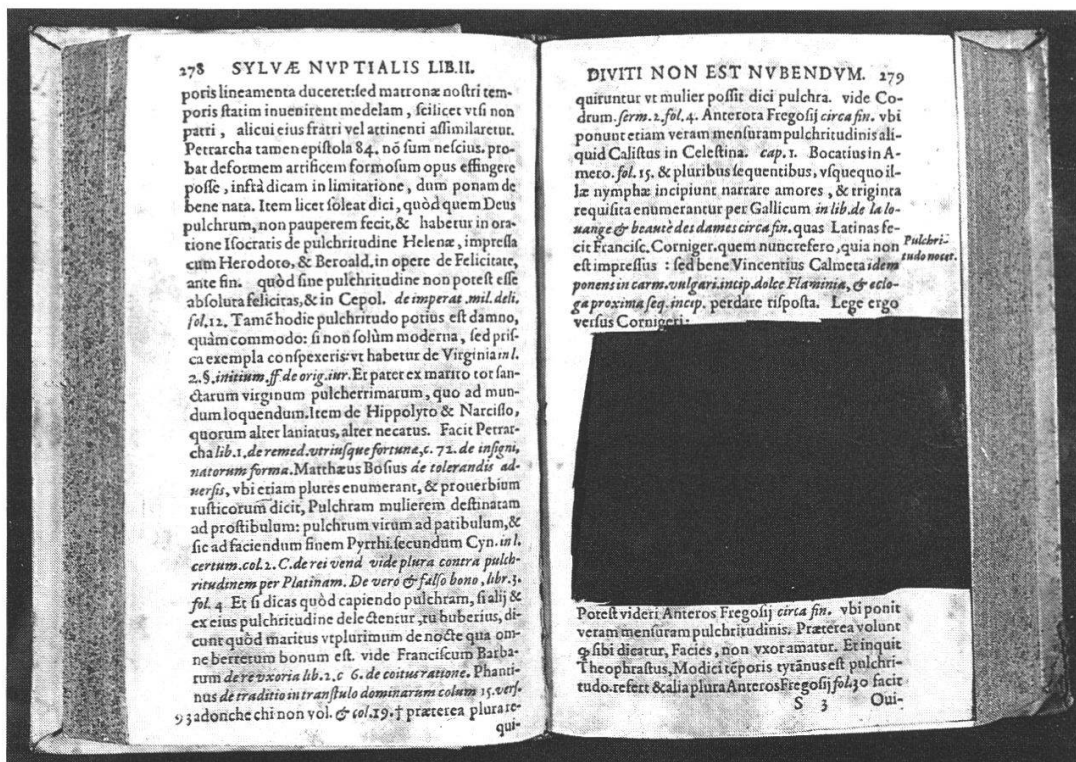 278 SYLVÆ NVPTIALIS LIB.II.
poris lineamenta duceret:sed matronæ nostri tem-
poris statim inuenirent medelam, scilicet vt si non
patri, alicui eius fratri vel attinenti assimilaretur.
Petrarcha tamen epistola 84. nõ sum nescius. pro-
bat deformem artificem formosum opus effingere
posse, infrà dicam in limitatione, dum ponam de
bene nata. Item licet soleat dici, quòd quem Deus
pulchrum, non pauperem fecit, & habetur in ora-
tione Isocratis de pulchritudine Helenæ, impressa
cum Herodoto, & Beroald. in opere de Felicitate,
ante fin. quòd sine pulchritudine non potest esse
absoluta felicitas, & in Cepol. de imperat. mil. deli.
fol.12. Tamē hodie pulchritudo potius est damno,
quàm commodo: si non solùm moderna, sed pris-
ca exempla conspexeris: vt habetur de Virginia in l.
2.§.initium.ff.de orig.iur. Et pater ex marito tot san-
ctarum virginum pulcherrimarum, quo ad mun-
dum loquendum. Item de Hippolyto & Narcisso,
quorum alter laniatus, alter necatus. Facit Petrar-
cha lib.1.de remed.vtriusque fortunæ, c. 72. de insigni,
natorum forma. Matthæus Bosius de tolerandis ad-
uersis, vbi etiam plures enumerant, & prouerbium
rusticorum dicit, Pulchram mulierem destinatam
ad prostibulum: pulchrum virum ad patibulum, &
sic ad faciendum finem Pyrrhi. secundum Cyn. in l.
certum.col.2. C. de rei vend vide plura contra pulch-
ritudinem per Platinam. De vero & falso bono, libr.3.
fol. 4. Et si dicas quòd capiendo pulchram, si alij &
ex eius pulchritudine delectentur, tu huberius, di-
cunt quòd maritus vt plurimum de nocte qua om-
ne berretum bonum est. vide Franciscum Barba-
rum de re vxoria lib.2.c 6. de coitus ratione. Phanti-
nus de traditio in transtulo dominarum colum 15. vers.
93 adonche chi non vol. & col.19.† præterea plura re-
qui-
DIVITI NON EST NVBENDVM. 279
quiruntur vt mulier possit dici pulchra. vide Co-
drum. serm.2.fol.4. Anterota Fregosij circa fin. vbi
ponunt etiam veram mensuram pulchritudinis ali-
quid Calistus in Celestina. cap.1. Bocatius in A-
meto. fol.15. & pluribus sequentibus, vsquequo il-
læ nymphæ incipiunt narrare amores, & triginta
requisita enumerantur per Gallicum in lib. de la lo-
uange & beautè des dames circa fin. quas Latinas fe-
cit Francisc. Corniger. quem nunc refero, quia non
est impressus: sed bene Vincentius Calmeta idem
ponens in carm. vulgari. incip. dolce Flaminia, & eclo-
ga proxima seq. incip. perdare risposta. Lege ergo
versus Cornigeri:
Pulchri-
tudo nocet.
Potest videri Anteros Fregosij circa fin. vbi ponit
veram mensuram pulchritudinis. Præterea volunt
q̃ sibi dicatur, Facies, non vxor amatur. Et inquit
Theophrastus, Modici tẽporis tyrãnus est pulchri-
tudo. refert & alia plura Anteros Fregosij fol.30 facit
S 3 Oui-